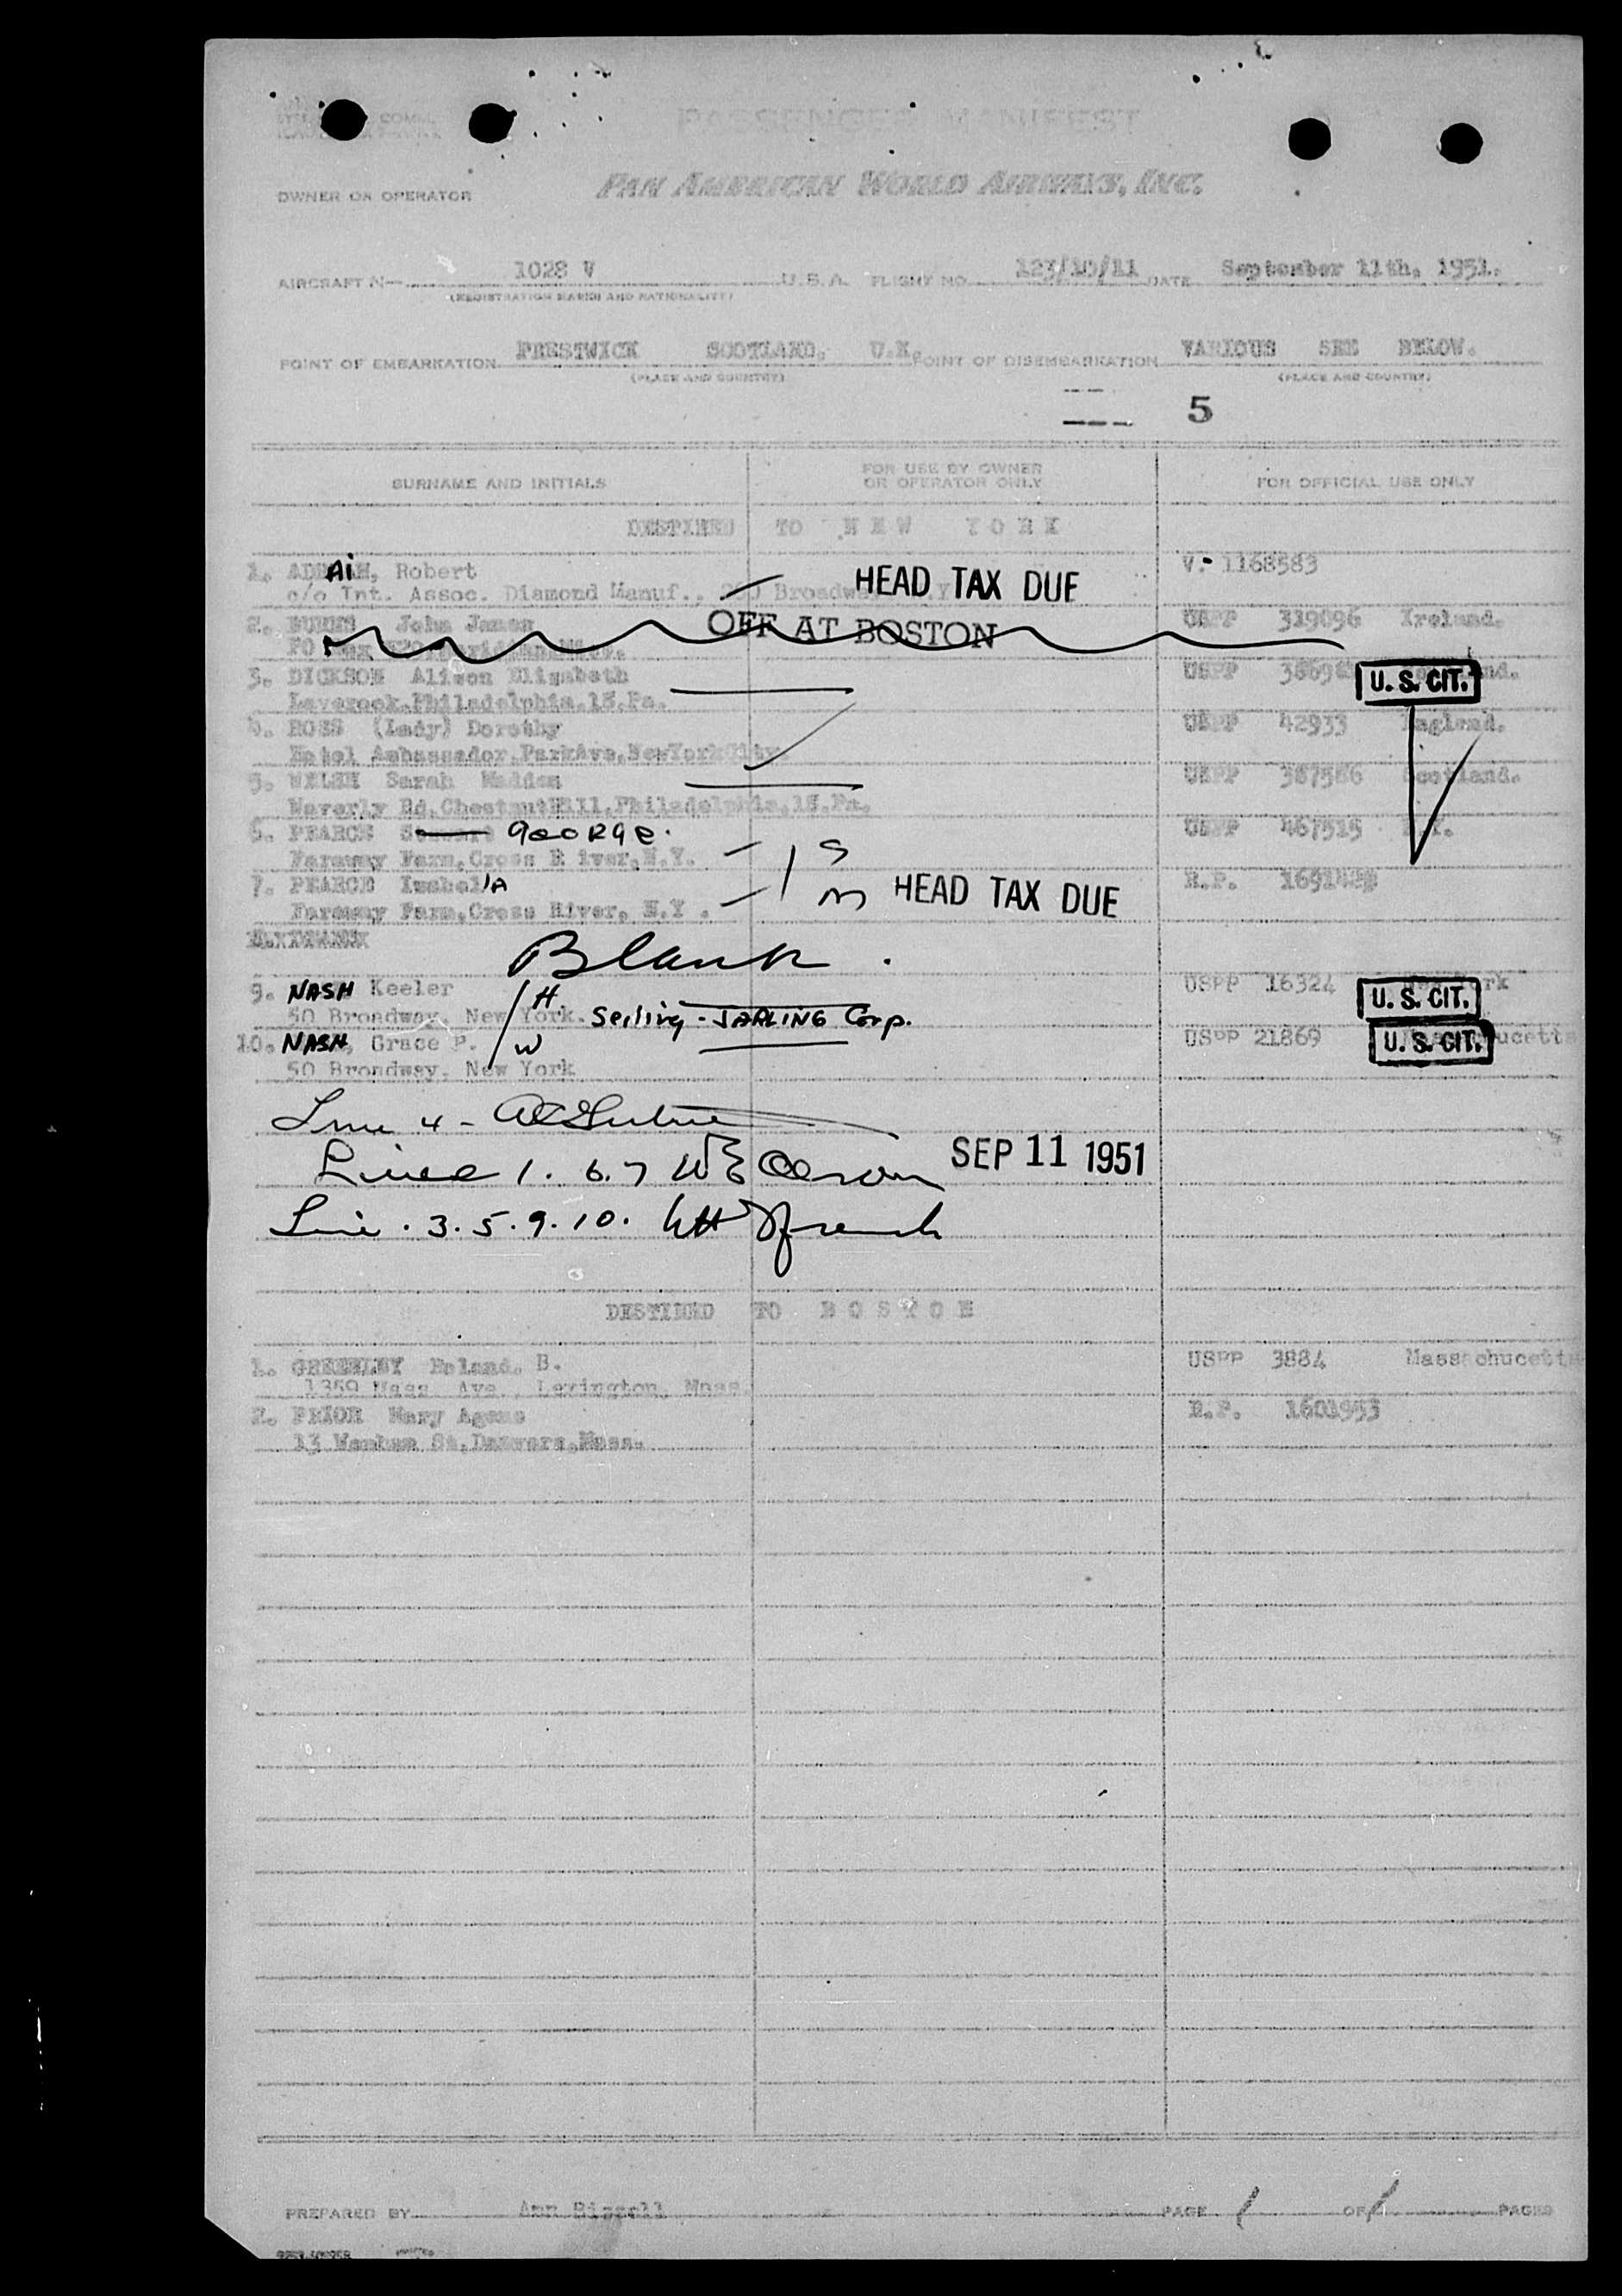 PASSENGER MANIFEST
OWNER OR OPERATOR PAN AMERICAN WORLD AIRWAYS, INC.
AIRCRAFT N— 1028 V U.S.A. FLIGHT NO. 123/10/11 DATE September 11th. 1951.
(REGISTRATION MARKS AND NATIONALITY)
POINT OF EMBARKATION PRESTWICK SCOTLAND. U.K. POINT OF DISEMBARKATION VARIOUS SEE BELOW.
(PLACE AND COUNTRY) (PLACE AND COUNTRY)
5
SURNAME AND INITIALS FOR USE BY OWNER OR OPERATOR ONLY FOR OFFICIAL USE ONLY
DESTINED TO NEW YORK
1. Robert HEAD TAX DUE V.- 1168583
c/o Int. Assoc. Diamond Manuf.. Broadway
2. BURNS John James OFF AT BOSTON USPP 319096 Ireland.
PO Box
3. DICKSON Alison Elizabeth USPP U. S. CIT.
Laverock.Philadelphia.18.Pa.
4. ROSS (Lady) Dorothy USPP 42933 England.
Hotel Ambassador.ParkAve.NewYorkCity.
5. WELSH Sarah Madden USPP 387586 Scotland.
Waverly Rd.ChestnutHill.Philadelphia.18.Pa.
6. PEARCE George. USPP 467515 N.Y.
Faraway Farm,Cross R iver,N.Y. S
7. PEARCE IsabellA R.P.
Faraway Farm,Cross River, N.Y. M HEAD TAX DUE
Blank.
9. NASH Keeler H USPP 16324 U. S. CIT.
50 Broadway. New York. Seiling-JARLING Corp.
10. NASH, Grace P. W USPP 21869 U. S. CIT.
50 Broadway. New York
Line 4 -
Lines 1. 6. 7 SEP 11 1951
Line . 3. 5. 9. 10. French
DESTINED TO BOSTON
1. GREELEY Roland. B. USPP 3884 Massachucetts
1359 Mass. Ave., Lexington, Mass
2. PRIOR Mary Agnes R.P. 1601953
13 Wenham St,Danvers,Mass.
PREPARED BY Ann PAGE 1 OF 1 PAGES